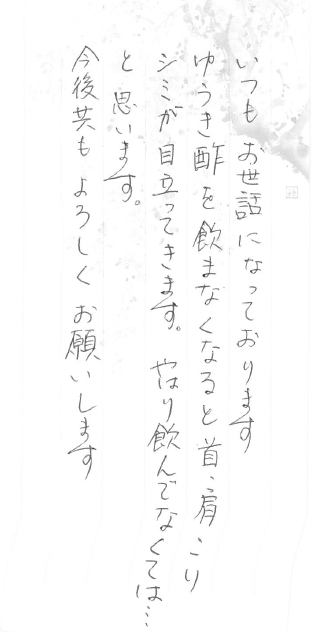 いつもお世話になっております
ゆうき酢を飲まなくなると首、肩こり
シミが目立ってきます。やはり飲んでなくては…
と思います。
今後共もよろしくお願いします